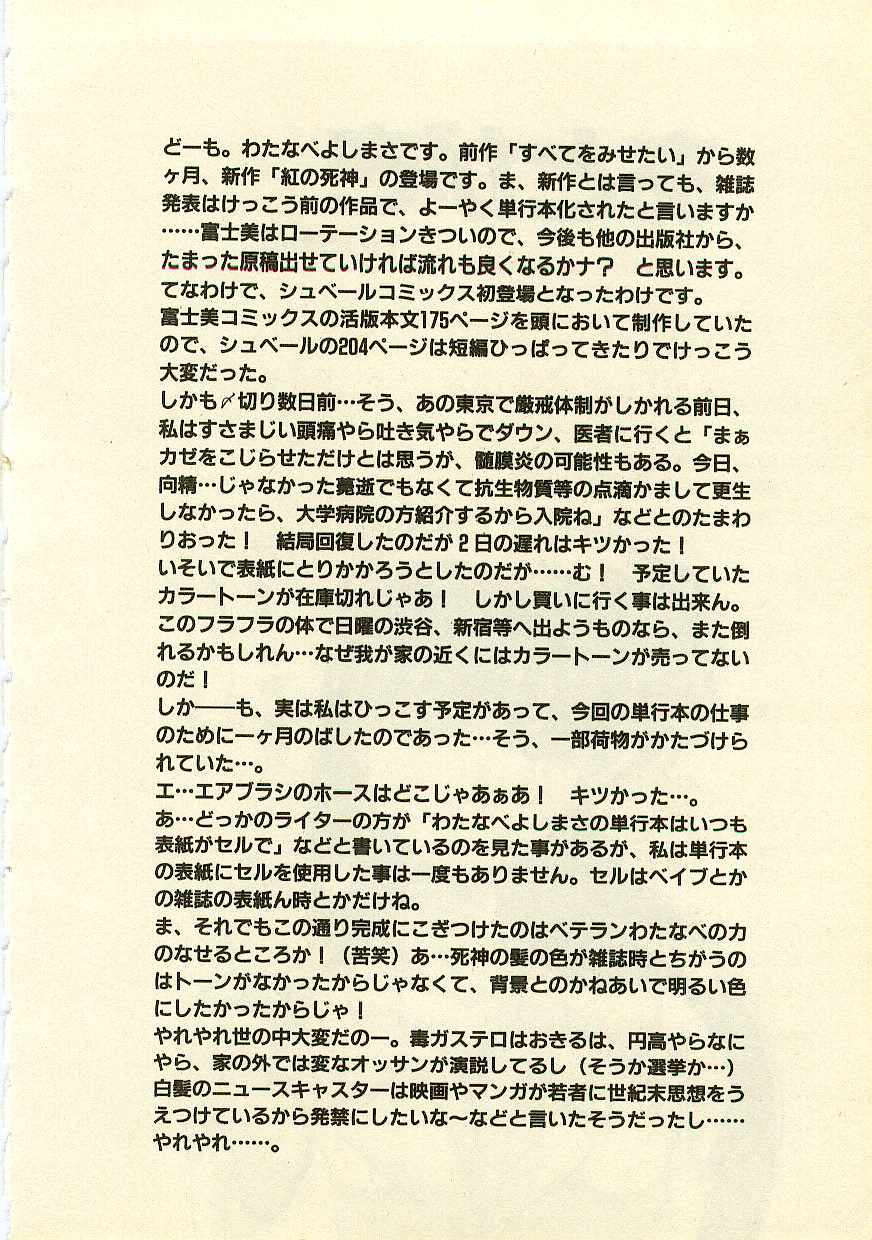 どーも。わたなべよしまさです。前作「すべてをみせたい」から数
ヶ月、新作「紅の死神」の登場です。ま、新作とは言っても、雑誌
発表はけっこう前の作品で、よーやく単行本化されたと言いますか
……富士美はローテーションきついので、今後も他の出版社から、
たまった原稿出せていければ流れも良くなるかナ？　と思います。
てなわけで、シュベールコミックス初登場となったわけです。
富士美コミックスの活版本文175ページを頭において制作していた
ので、シュベールの204ページは短編ひっぱってきたりでけっこう
大変だった。
しかも〆切り数日前…そう、あの東京で厳戒体制がしかれる前日、
私はすさまじい頭痛やら吐き気やらでダウン、医者に行くと「まぁ
カゼをこじらせただけとは思うが、髄膜炎の可能性もある。今日、
向精…じゃなかった薨逝でもなくて抗生物質等の点滴かまして更生
しなかったら、大学病院の方紹介するから入院ね」などとのたまわ
りおった！　結局回復したのだが２日の遅れはキツかった！
いそいで表紙にとりかかろうとしたのだが……む！　予定していた
カラートーンが在庫切れじゃあ！　しかし買いに行く事は出来ん。
このフラフラの体で日曜の渋谷、新宿等へ出ようものなら、また倒
れるかもしれん…なぜ我が家の近くにはカラートーンが売ってない
のだ！
しか――も、実は私はひっこす予定があって、今回の単行本の仕事
のために一ヶ月のばしたのであった…そう、一部荷物がかたづけら
れていた…。
エ…エアブラシのホースはどこじゃあぁあ！　キツかった…。
あ…どっかのライターの方が「わたなべよしまさの単行本はいつも
表紙がセルで」などと書いているのを見た事があるが、私は単行本
の表紙にセルを使用した事は一度もありません。セルはベイブとか
の雑誌の表紙ん時とかだけね。
ま、それでもこの通り完成にこぎつけたのはベテランわたなべの力
のなせるところか！（苦笑）あ…死神の髪の色が雑誌時とちがうの
はトーンがなかったからじゃなくて、背景とのかねあいで明るい色
にしたかったからじゃ！
やれやれ世の中大変だのー。毒ガステロはおきるは、円高やらなに
やら、家の外では変なオッサンが演説してるし（そうか選挙か…）
白髪のニュースキャスターは映画やマンガが若者に世紀末思想をう
えつけているから発禁にしたいな～などと言いたそうだったし……
やれやれ……。